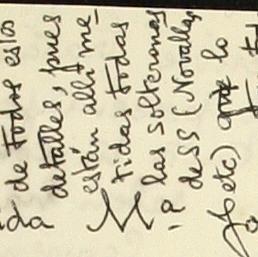 de todos estos
detalles, pues
están allí me-
tidas todas
las solteronas
de SS (Novally,
etc) que lo